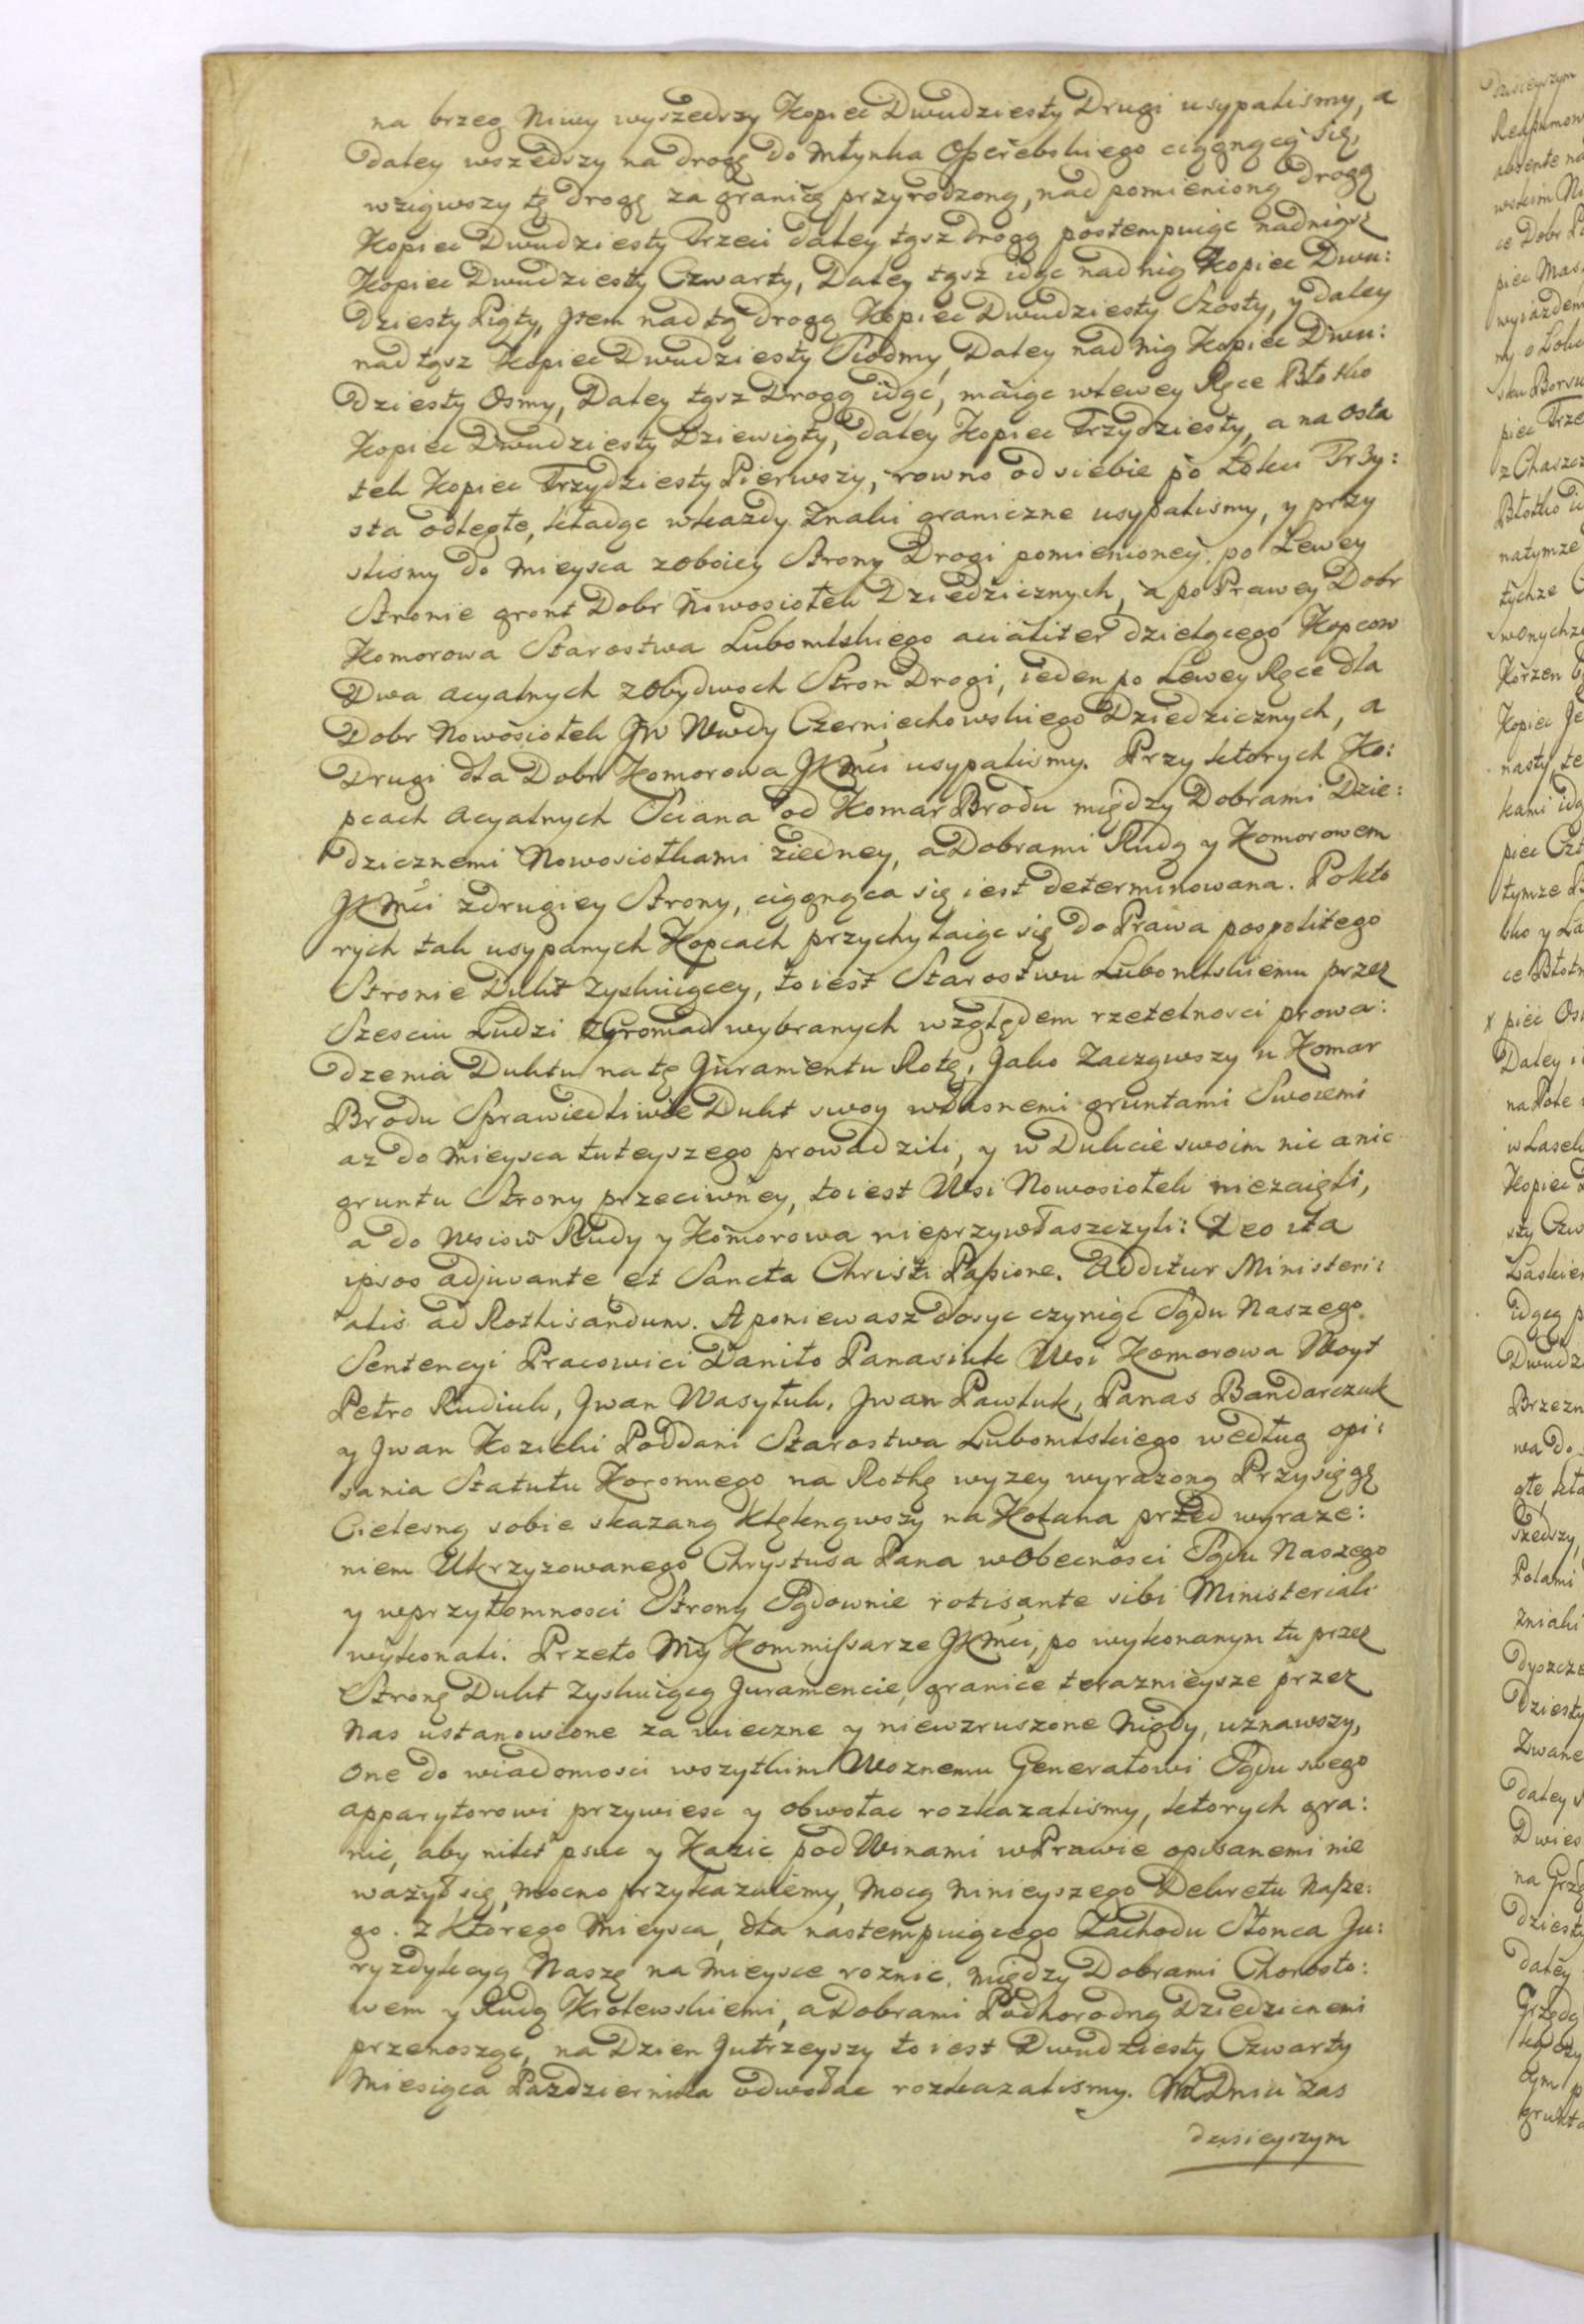 na brzeg Niwy wyszedszy Kopiec Dwudziesty Drugi usypalismy, a
daley wszedszy na drogę do Młynka ciągnącą się,
wziąwszy tę drogę za granicę przyrodzoną, nad pomienioną drogą
Kopiec Dwudziesty Trzeci daley tąsz drogą postempuiąc nad nią
Kopiec Dwudziesty Czwarty, Daley tąsz idąc nad nią Kopiec Dwu:
dziesty Piąty, Jtem nad tą drogą Kopiec Dwudziesty Szosty, y daley
nad tąsz Kopiec Dwudziesty Siodmy, Daley nad nią Kopiec Dwu:
dziesty Osmy, Daley tąsz Drogą idąc, maiąc w lewey Ręce Błotko
Kopiec Dwudziesty Dziewiąty, daley Kopiec Trzydziesty, a na osta
tek Kopiec Trzydziesty Pierwszy, rowno od siebie po Łokci Trzy:
sta odległe, kładąc w każdy Znaki graniczne usypalismy, y przy
slismy do Mieysca z oboiey Strony Drogi pomienioney po Lewey
Stronie gront Dobr Nowosiołek Dziedzicznych, a po Prawey Dobr
Komorowa Starostwa Lubomlskiego acialiter dzielącego Kopcow
Dwa acyalnych z obydwoch Stron Drogi, ieden po Lewey Ręce dla
Dobr Nowosiołek JW Wwdy Czerniechowskiego Dziedzicznych, a
Drugi dla Dobr Komorowa JKMci usypalismy. Przy ktorych Ko:
pcach acyalnych Sciana od Komar Brodu między Dobrami Dzie:
dzicznemi Nowosiołkami z iedney, a Dobrami Rudą y Komorowem
JKMci z drugiey Strony, ciągnąca się iest determinowana. Po kto
rych tak usypanych Kopcach przychylaiąc się do Prawa pospolitego
Stronie Dukt Zyskuiącey, to iest Starostwu Lubomlskiemu przez
Szesciu Ludzi z Gromad wybranych względem rzetelnosci prowa:
dzenia Duktu na tę Juramentu Rotę, Jako Zacząwszy u Komar
Brodu Sprawiedliwie Dukt swoy własnemi gruntami Swoiemi
az do Mieysca tuteyszego prowadzili, y w Dukcie swoim nic a nic
gruntu Strony przeciwney, to iest Wsi Nowosiołek niezaięli,
a do Wsiow Rudy y Komorowa nieprzywłaszczyli: Deo ita
ipsos adjuvante et Sancta Christi Passione. Additur Ministeri:
alis ad Rothisandum. A poniewasz dosyc czyniąc Sądu Naszego
Sentencyi Pracowici Daniło Panasiuk Wsi Komorowa Woyt
Petro Rudiuk, Jwan Wasyluk, Jwan Pawluk, Panas Bandarczuk
y Jwan Kozicki Poddani Starostwa Lubomlskiego według opi:
sania Statutu Koronnego na Rothę wyzey wyrazoną Przysięgę
Cielesną sobie skazaną klęknąwszy na Kolana przed wyraze:
niem Ukrzyzowanego Chrystusa Pana w Obecnosci Sądu Naszego
y w przytomnosci Strony Sądownie rotisante sibi Ministeriali
wykonali. Przeto My Kommissarze JKMci, po wykonanym tu przez
Stronę Dukt Zyskuiącą Juramencie, granice teraznieysze przez
Nas ustanowione za wieczne y niewzruszone Nigdy, uznawszy,
one do wiadomosci wszytkim Woznemu Generałowi Sądu swego
apparytorowi przywiesc y obwołac rozkazalismy, ktorych gra:
nic, aby nikt psuc y Kazic pod Winami w Prawie opisanemi nie
wazył się, mocno przykazuiemy, mocą ninieyszego Dekretu Nasze:
go. Z Ktorego Mieysca, dla nastempuiącego Zachodu Słonca Ju:
ryzdykcyą Naszę na Mieysce roznic, między Dobrami Chorosto:
wem y Rudą Krolewskiemi, a Dobrami Podhorodną Dziedzicnemi
przenosząc, na Dzien Jutrzeyszy to iest Dwudziesty Czwarty
Miesiąca Pazdziernika odwołac rozkazalismy. W Dniu zas
dzisieyszym